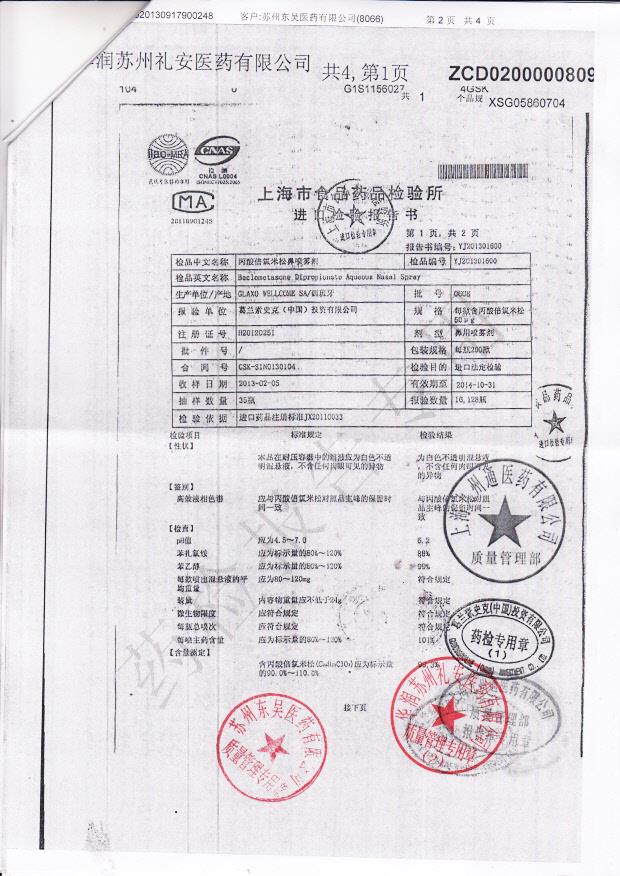 20130917900248 客户:苏州东吴医药有限公司(8066) 第 2 页 共 4 页
润苏州礼安医药有限公司 共4,第1页 ZCD0200000809
104 0 G1S1156027 共 1 4GSK 个品规 XSG05860704
ILAC-MRA CNAS
检 测
CNAS L0904
MA
2011090124S
上海市食品药品检验所
进口检验报告书
第 1 页, 共 2 页
报告书编号: YJ201301600
检品中文名称 丙酸倍氯米松鼻喷雾剂 检品编号 YJ201301600
检品英文名称 Beclometasone Dipropionate Aqueous Nasal Spray
生产单位/产地 GLAXO WELLCOME SA/西班牙 批 号 0608
报验单位 葛兰素史克(中国)投资有限公司 规 格 每揿含丙酸倍氯米松50μg
注册证号 H20120251 剂 型 鼻用喷雾剂
批件号 / 包装规格 每瓶200揿
合同号 GSK-SIN0130104 检验目的 进口法定检验
收样日期 2013-02-05 有效期至 2014-10-31
抽样数量 35瓶 报验数量 16,128瓶
检验依据 进口药品注册标准JX20110033
检验项目 标准规定 检验结果
[性状]
本品在耐压容器中的组液应为白色不透明混悬液,不含任何肉眼可见的异物 为白色不透明混悬液,不含任何肉眼可见的异物
[鉴别]
高效液相色谱 应与丙酸倍氯米松对照品主峰的保留时间一致 与丙酸倍氯米松对照品主峰的保留时间一致
[检查]
pH值 应为4.5~7.0 6.2
苯扎氯铵 应为标示量的80%~120% 88%
苯乙醇 应为标示量的80%~120% 99%
每揿喷出混悬液的平均重量 应为80~120mg 符合规定
装量 内容物重量应不低于24g 符合规定
微生物限度 应符合规定 符合规定
每瓶总喷次 应符合规定 符合规定
每喷主药含量 应为标示量的80%~120% 101%
[含量测定]
含丙酸倍氯米松应为标示量的90.0%~110.0%
接下页
进口检验专用章
上海 州通医药有限公司
质量管理部
葛兰素史克(中国)投资有限公司
药检专用章
(1)
苏州东吴医药有限公司
质量管理专用章
华润苏州礼安医药有限公司
质量管理专用章
(2)
药检报告专